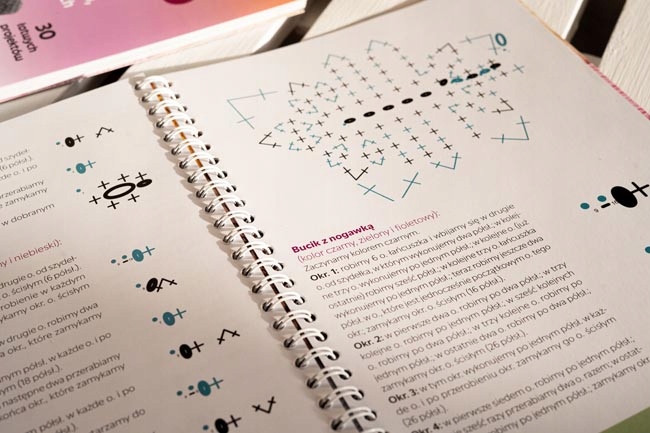 30
łatwych
projektów
od szydeł-
(6 półsł.).
o. i po
przerabiamy
w dobranym
y i niebieski):
drugie o. od szydeł-
(6 półsł.).
robienie w każdym
zamykamy o. ścisłym
w drugie o. robimy dwa
a okr., które zamykamy
półsł. w każde o. i po
(18 półsł.).
następne dwa przerabiamy
końca okr., które zamykamy
półsł. w każde o. i po
0
Bucik z nogawką
(kolor czarny, zielony i fioletowy):
Zaczynamy kolorem czarnym.
Okr. 1: robimy 6 o. łańcuszka i wbijamy się w drugie
o. od szydełka, w którym wykonujemy dwa półsł.; w kolej-
ne trzy o. wykonujemy po jednym półsł.; w kolejne o. (już
ostatnie) robimy sześć półsł., w kolejne trzy o. łańcuszka
wykonujemy po jednym półsł.; teraz robimy jeszcze dwa
półsł. w o., które jest jednocześnie początkowym o. tego
okr.; zamykamy okr. o. ścisłym (16 półsł.).
Okr. 2: w pierwsze dwa o. robimy po dwa półsł.; w trzy
kolejne o. robimy po jednym półsł.; w sześć kolejnych
o. robimy po dwa półsł.; w trzy kolejne o. robimy po
jednym półsł., w ostatnie dwa o. robimy po dwa półsł.;
zamykamy okr. o. ścisłym (26 półsł.).
Okr. 3: w tym okr. wykonujemy po jednym półsł. w każ-
de o. i po przerobieniu okr. zamykamy go o. ścisłym
(26 półsł.).
Okr. 4: w pierwsze siedem o. robimy po jednym półsł.;
sześć razy przerabiamy dwa o. razem; w ostat-
robimy po jednym półsł., zamykamy okr.